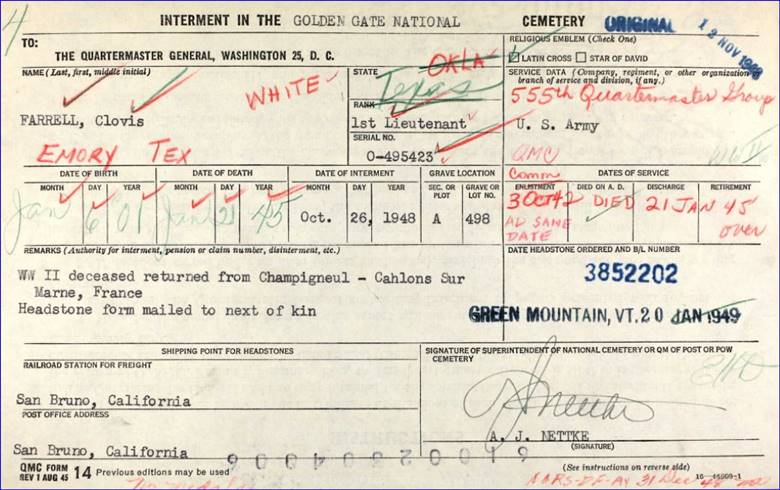 4
INTERMENT IN THE GOLDEN GATE NATIONAL CEMETERY ORIGINAL
12 NOV 1948
TO:
THE QUARTERMASTER GENERAL, WASHINGTON 25, D. C.
RELIGIOUS EMBLEM (Check One)
LATIN CROSS STAR OF DAVID
NAME (Last, first, middle initial)
WHITE
FARRELL, Clovis
EMORY TEX
STATE
OKLA
Texas
RANK
1st Lieutenant
SERIAL NO.
O-495423
SERVICE DATA (Company, regiment, or other organization
branch of service and division, if any.)
555th Quartermaster Group
U. S. Army
QMC
WW II
DATE OF BIRTH
MONTH DAY YEAR
Jan 6 01
DATE OF DEATH
MONTH DAY YEAR
Jan 21 45
DATE OF INTERMENT
MONTH DAY YEAR
Oct. 26, 1948
GRAVE LOCATION
SEC. OR PLOT
GRAVE OR LOT NO.
A 498
Comm
DATES OF SERVICE
ENLISTMENT DIED ON A. D. DISCHARGE RETIREMENT
3 Oct 42 DIED 21 JAN 45
AD SAME
DATE
over
REMARKS (Authority for interment, pension or claim number, disinterment, etc.)
WW II deceased returned from Champigneul - Cahlons Sur
Marne, France
Headstone form mailed to next of kin
DATE HEADSTONE ORDERED AND B/L NUMBER
3852202
GREEN MOUNTAIN, VT. 20 JAN 1949
SHIPPING POINT FOR HEADSTONES
RAILROAD STATION FOR FREIGHT
San Bruno, California
POST OFFICE ADDRESS
San Bruno, California
SIGNATURE OF SUPERINTENDENT OF NATIONAL CEMETERY OR QM OF POST OR POW
CEMETERY
A. J. NETTKE
(SIGNATURE)
QMC FORM
REV 1 AUG 45 14 Previous editions may be used
(See instructions on reverse side)
16-46909-1
31 Dec 48